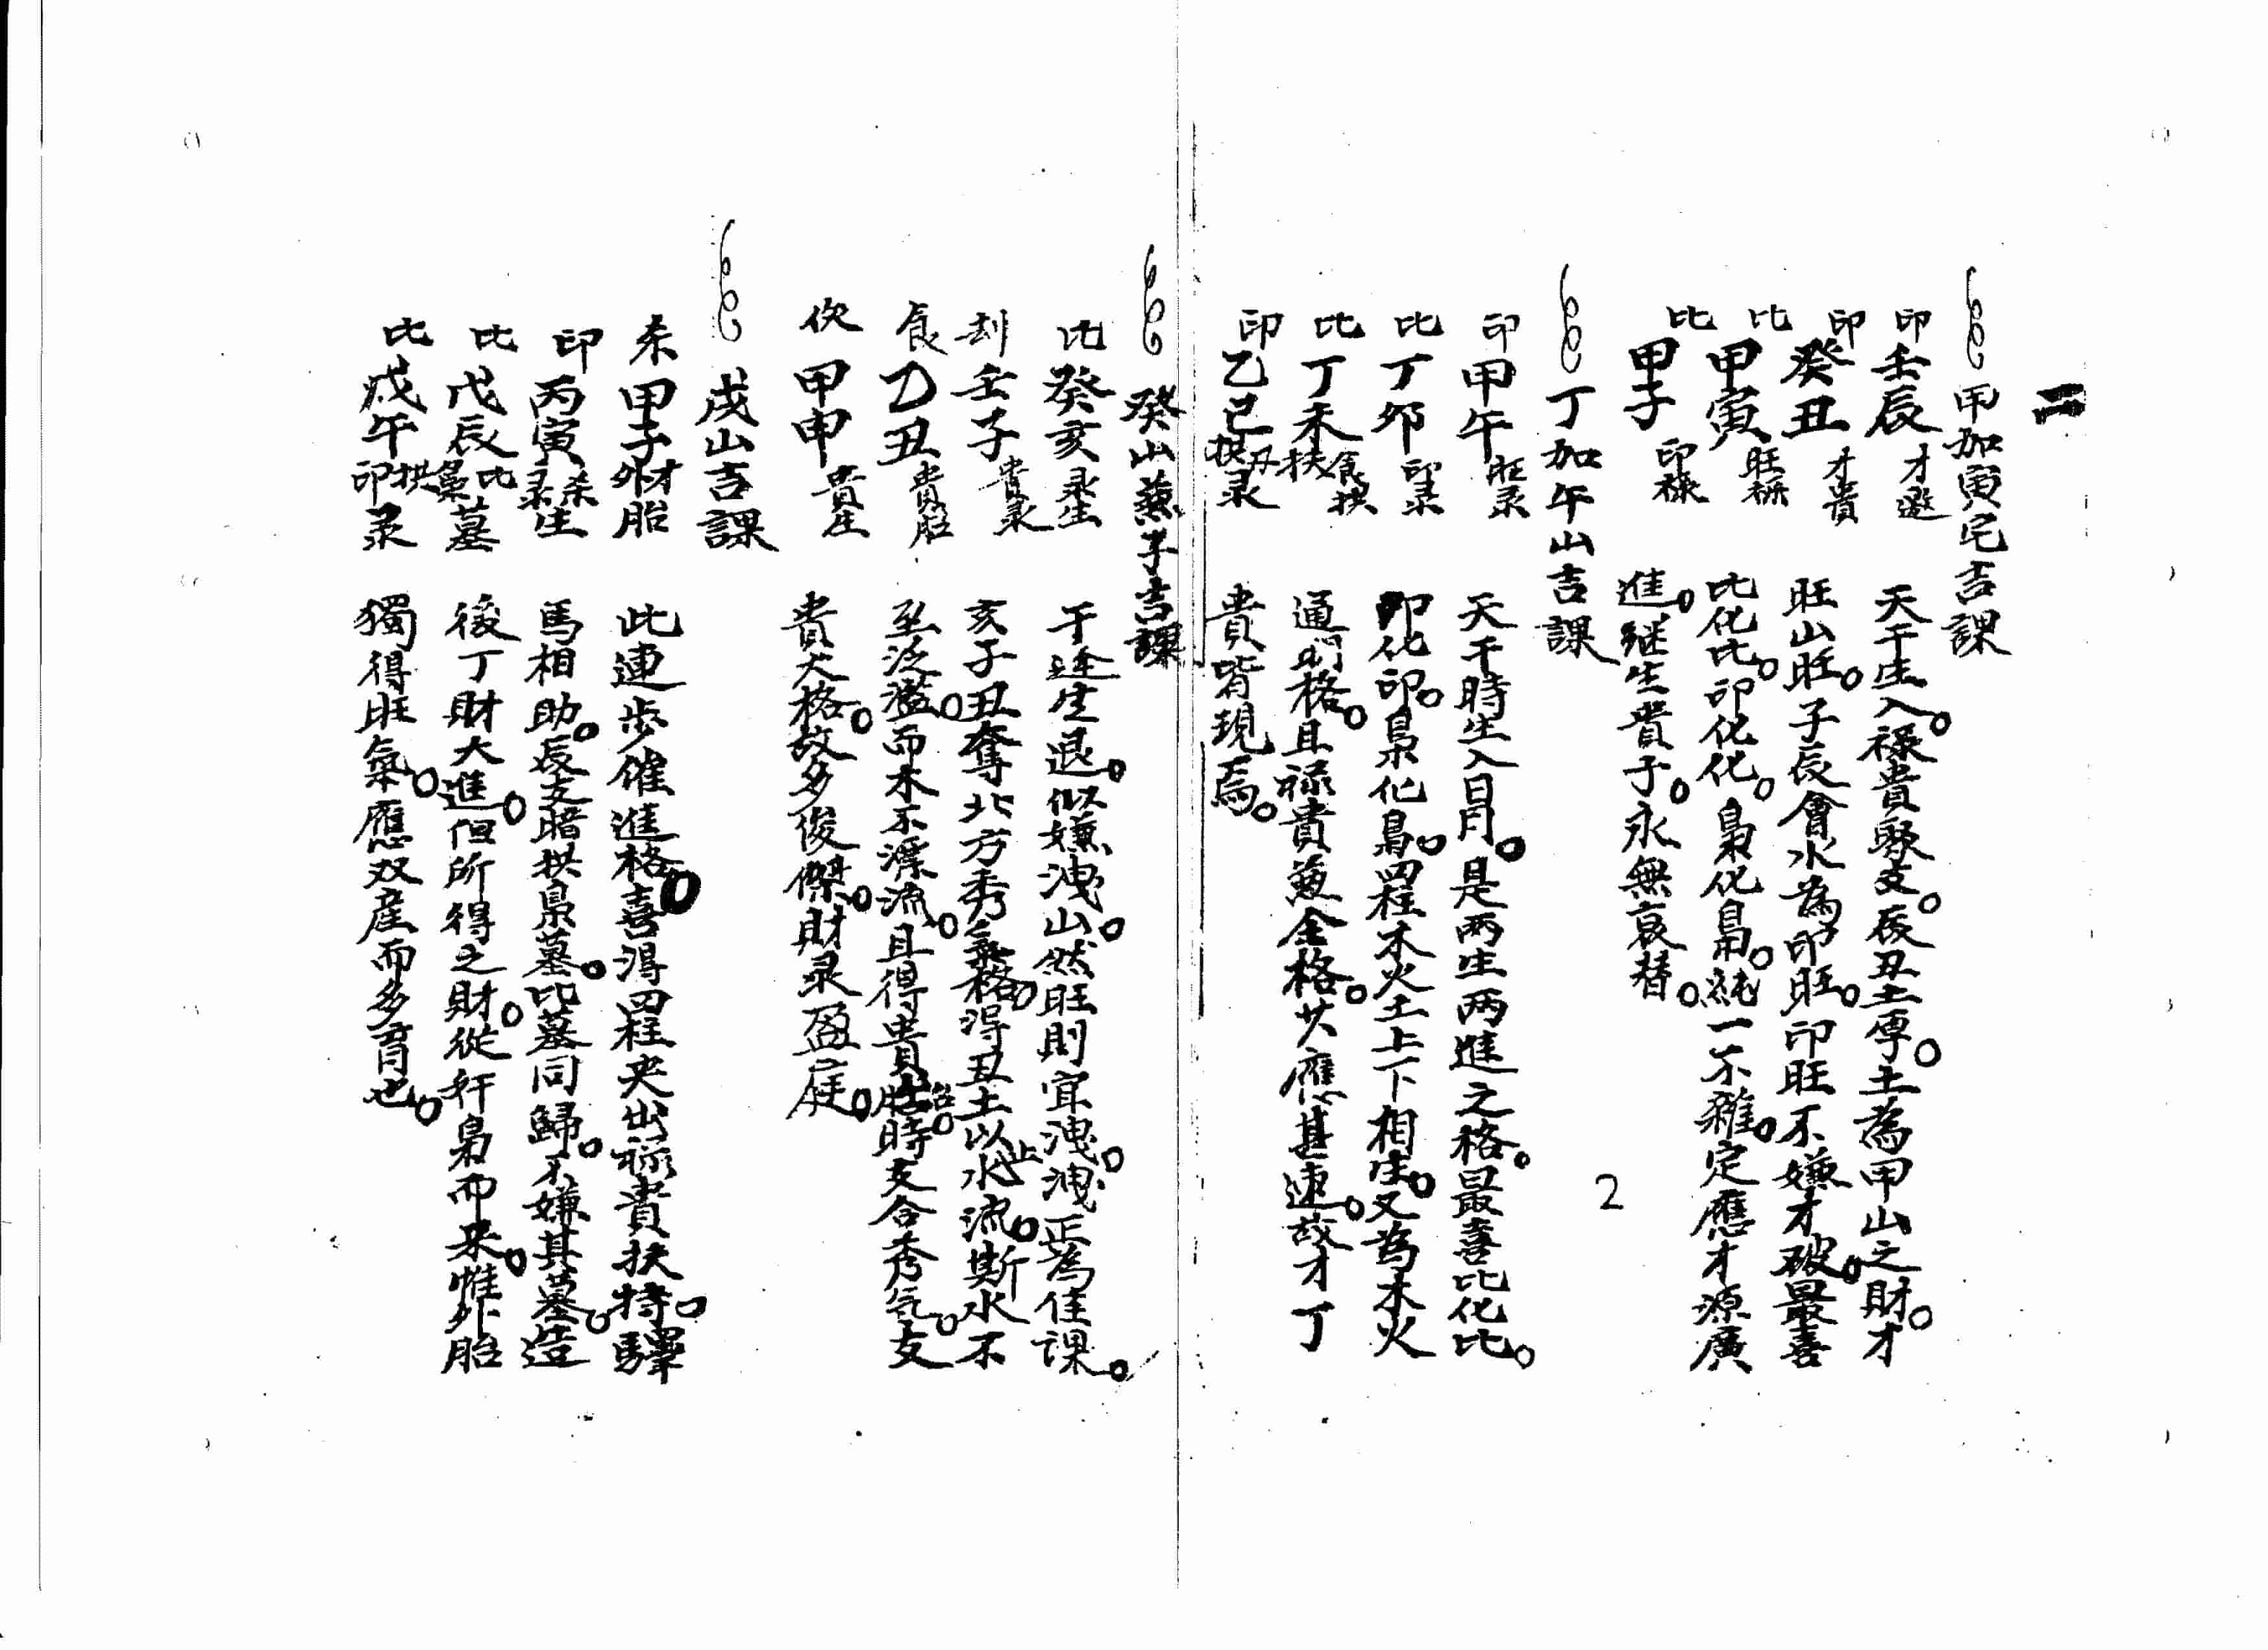 二
甲加寅宅吉課
印壬辰才 天干生入。祿貴聚支。辰丑土厚。土為甲山之財。才
印癸丑才貴 旺山旺。子辰會水為印旺。印旺不嫌才破。最喜
比甲寅旺 比化比。印化化。梟化梟。純一不雜。定應才源廣
比甲子印祿 進。継生貴子。永無衰替。
丁加午山吉課
印甲午旺彔 天干時生入日月。是两生两進之格。最喜比化比。
比丁卯印彔 印化印。梟化梟。四柱木火土上下相生。又為木火
比丁未食拱扶 通明格。且禄貴兼全格。共應甚速。故才丁
印乙巳刃拱彔 貴皆現焉。
2
癸山兼子吉課
比癸亥彔生 干逆生退。似嫌洩山。然旺則宜洩。洩正為佳課。
刦壬子貴彔 亥子丑奪北方秀氣格。得丑土以止水流。斯水不
食乙丑貴 至泛濫。而木不漂流。且得貴胎。時支合秀気。支
伤甲申貴生 貴大格。故多俊傑。財彔盈庭。
戊山吉課
杀甲子財胎 此連步催進格。喜得四柱夾出祿貴扶持。驛
印丙寅杀彔生 馬相助。辰支暗拱梟墓。比墓同歸。不嫌其墓。造
比戊辰比墓 後丁財大進。但所得之財。從奸梟而来。惟外胎
比戊午拱印彔 獨得旺氣。應双産而多育也。